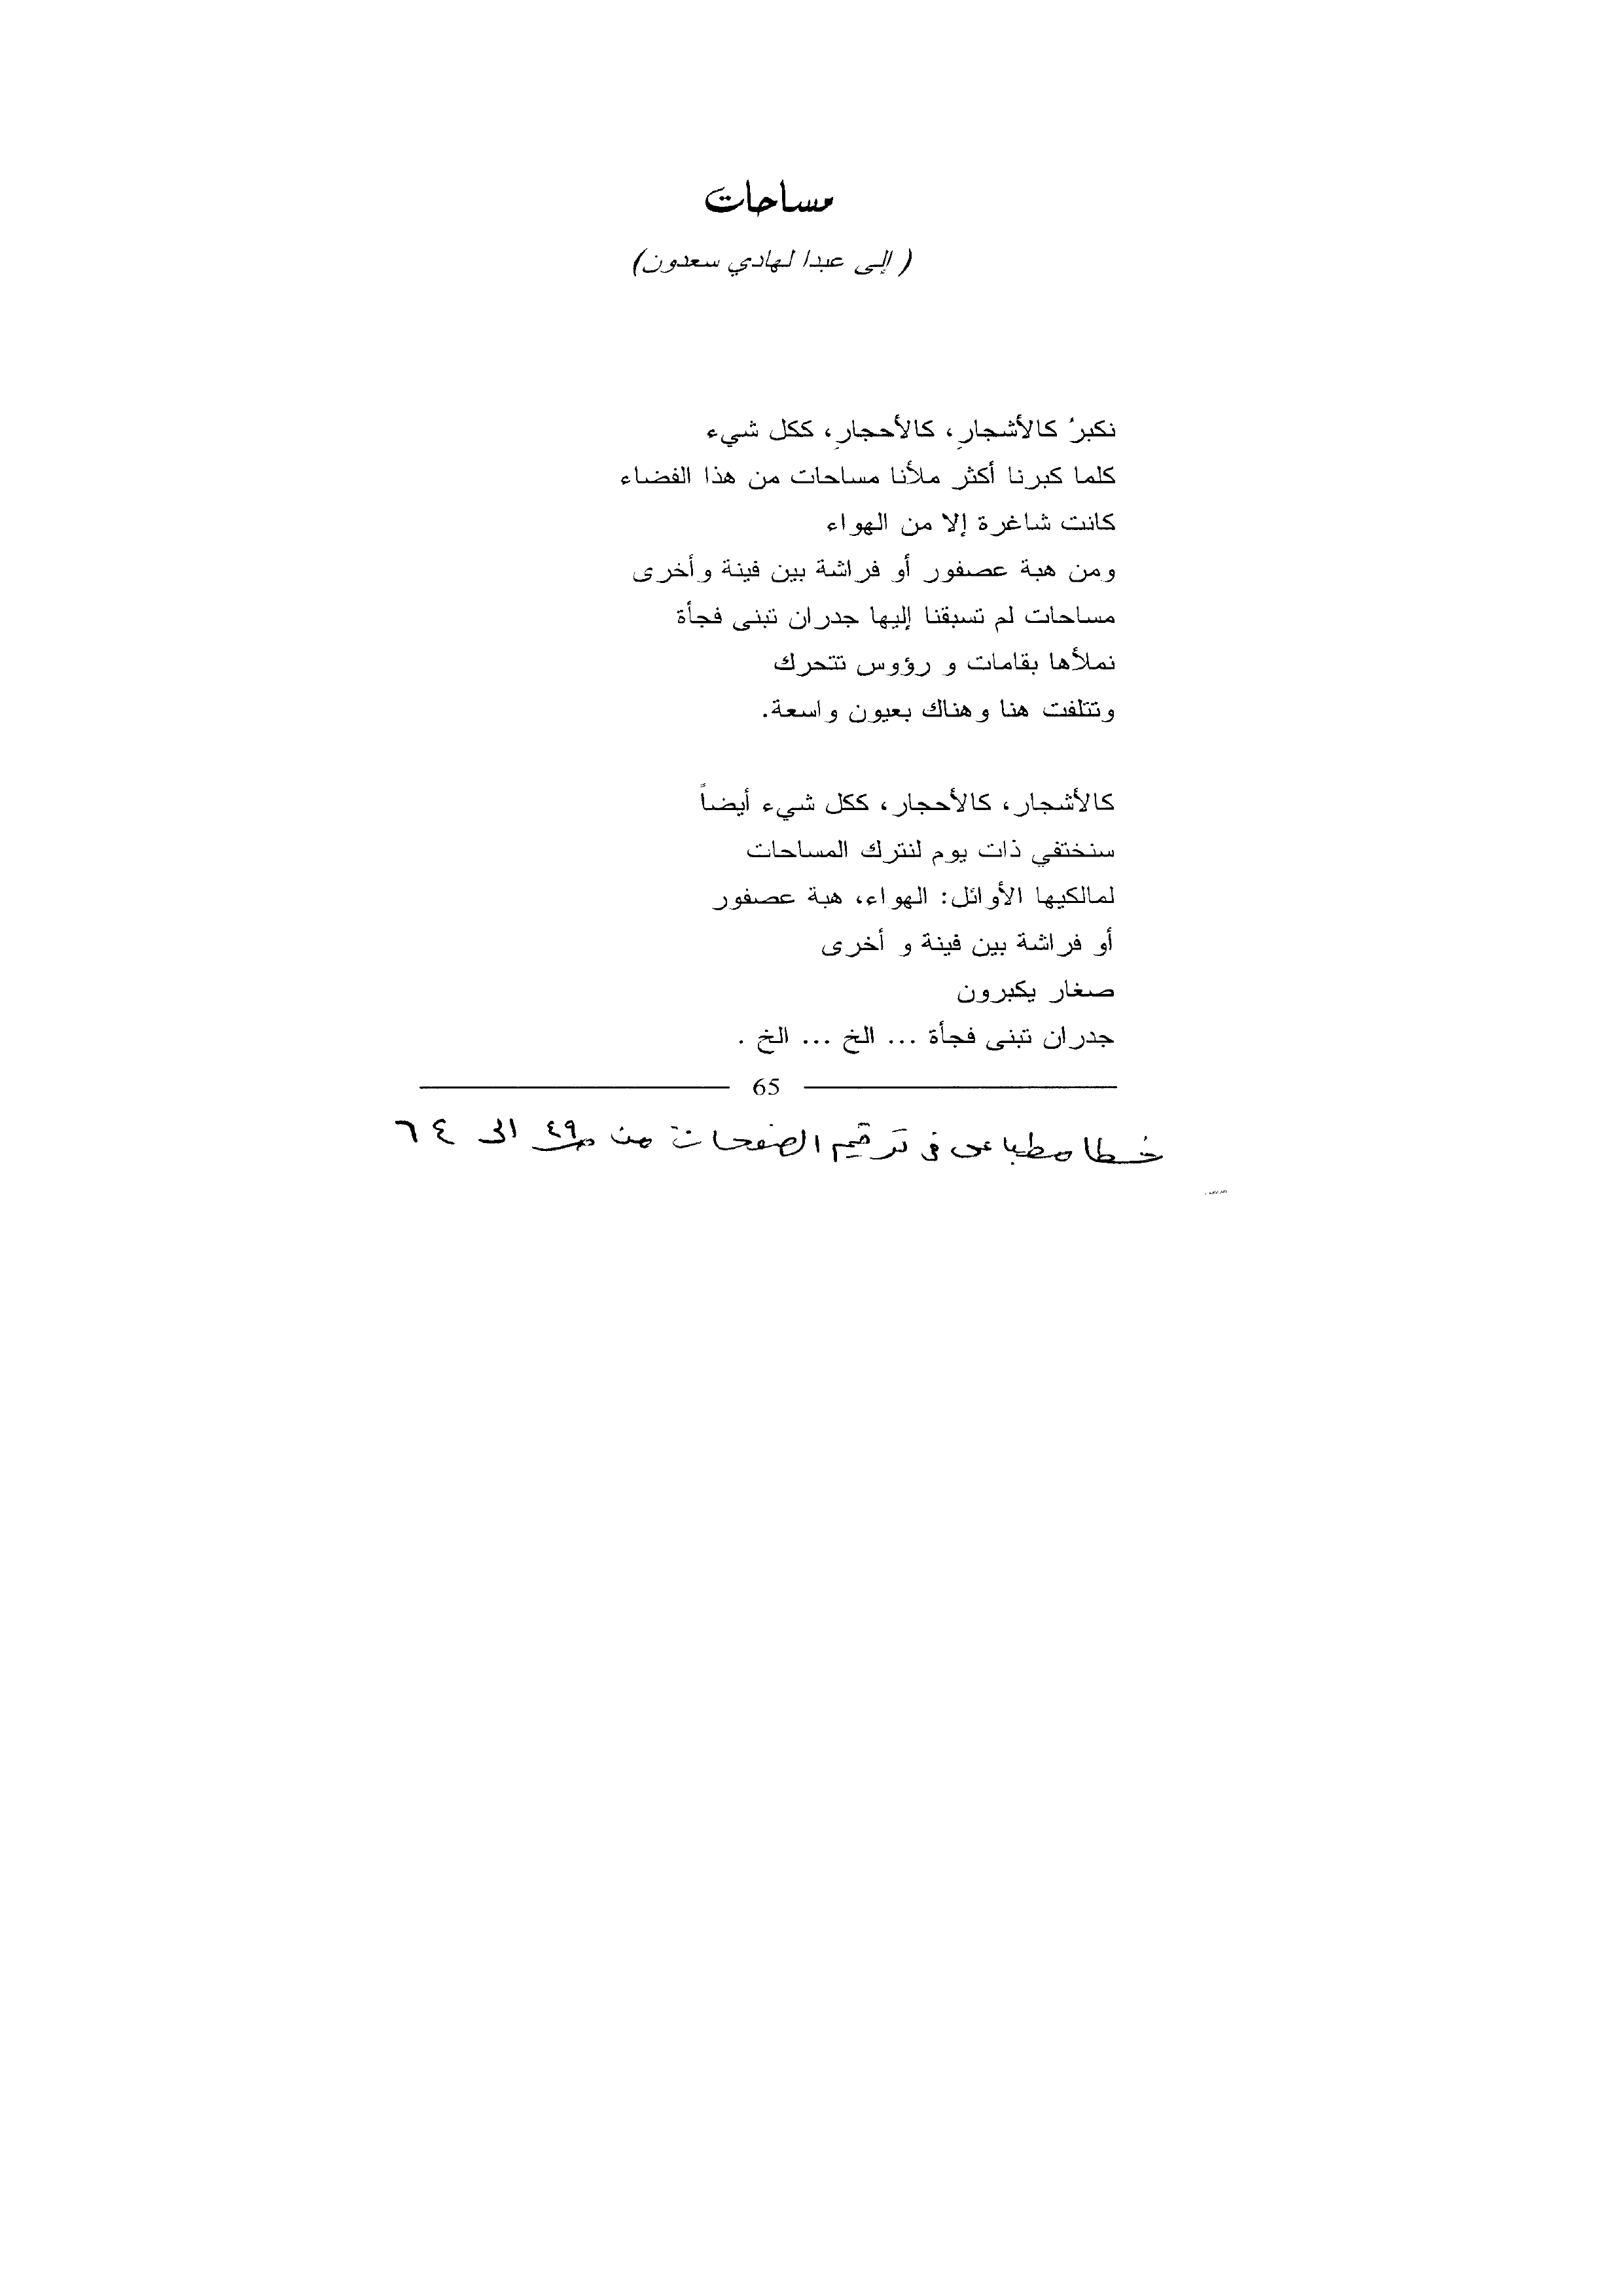 مساحات
( إلى عبدا لهادي سعدون)
نكبرُ كالأشجارِ، كالأحجارِ، ككل شيء
كلما كبرنا أكثر ملأنا مساحات من هذا الفضاء
كانت شاغرة إلا من الهواء
ومن هبة عصفور أو فراشة بين فينة وأخرى
مساحات لم تسبقنا إليها جدران تبنى فجأة
نملأها بقامات و رؤوس تتحرك
وتتلفت هنا وهناك بعيون واسعة.
كالأشجار، كالأحجار، ككل شيء أيضاً
سنختفي ذات يوم لنترك المساحات
لمالكيها الأوائل: الهواء، هبة عصفور
أو فراشة بين فينة و أخرى
صغار يكبرون
جدران تبنى فجأة ... الخ ... الخ .
65
خطا مطباعى فى ترقيم الصفحات من ص ٤٩ الى ٦٤